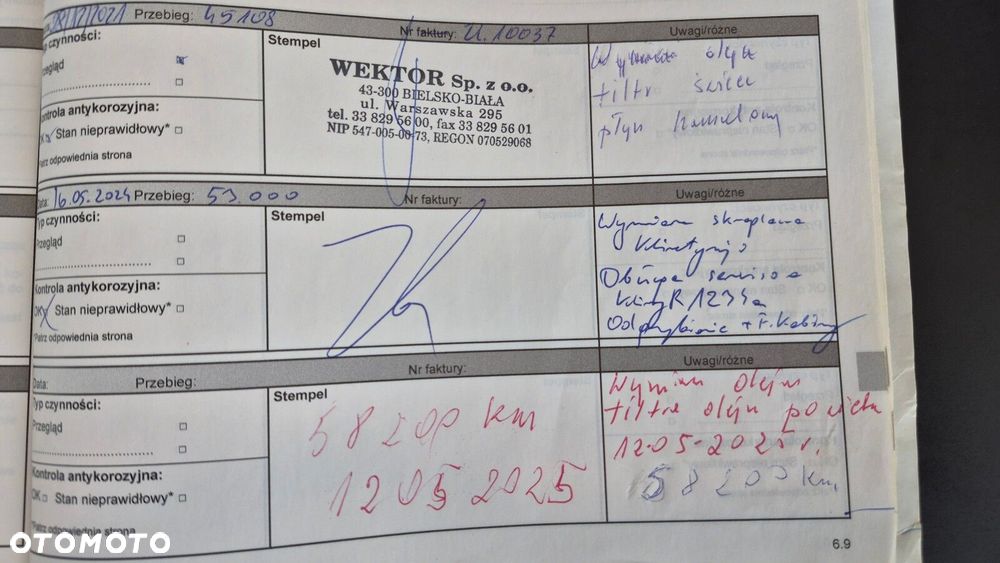 28/12/2021 Przebieg: 45108
Nr faktury: U.10037
Uwagi/różne
Typ czynności:
Przegląd
Kontrola antykorozyjna:
OK Stan nieprawidłowy*
*Patrz odpowiednia strona
Stempel
WEKTOR Sp. z o.o.
43-300 BIELSKO-BIAŁA
ul. Warszawska 295
tel. 33 829 56 00, fax 33 829 56 01
NIP 547-005-00-73, REGON 070529068
olej
filtr świece
płyn hamulcowy
Data: 16.05.2024 Przebieg: 53.000
Nr faktury:
Uwagi/różne
Typ czynności:
Przegląd
Kontrola antykorozyjna:
OK Stan nieprawidłowy*
*Patrz odpowiednia strona
Stempel
Wymiana
Obsługa serwisowa
R1234a
+ F. Kabiny
Data: Przebieg:
Nr faktury:
Uwagi/różne
Typ czynności:
Przegląd
Kontrola antykorozyjna:
OK Stan nieprawidłowy*
*Patrz odpowiednia strona
Stempel
58200 km
12 05 2025
Wymian oleju
filtre oleju
12-05-2025 r.
58200 km
6.9
OTOMOTO